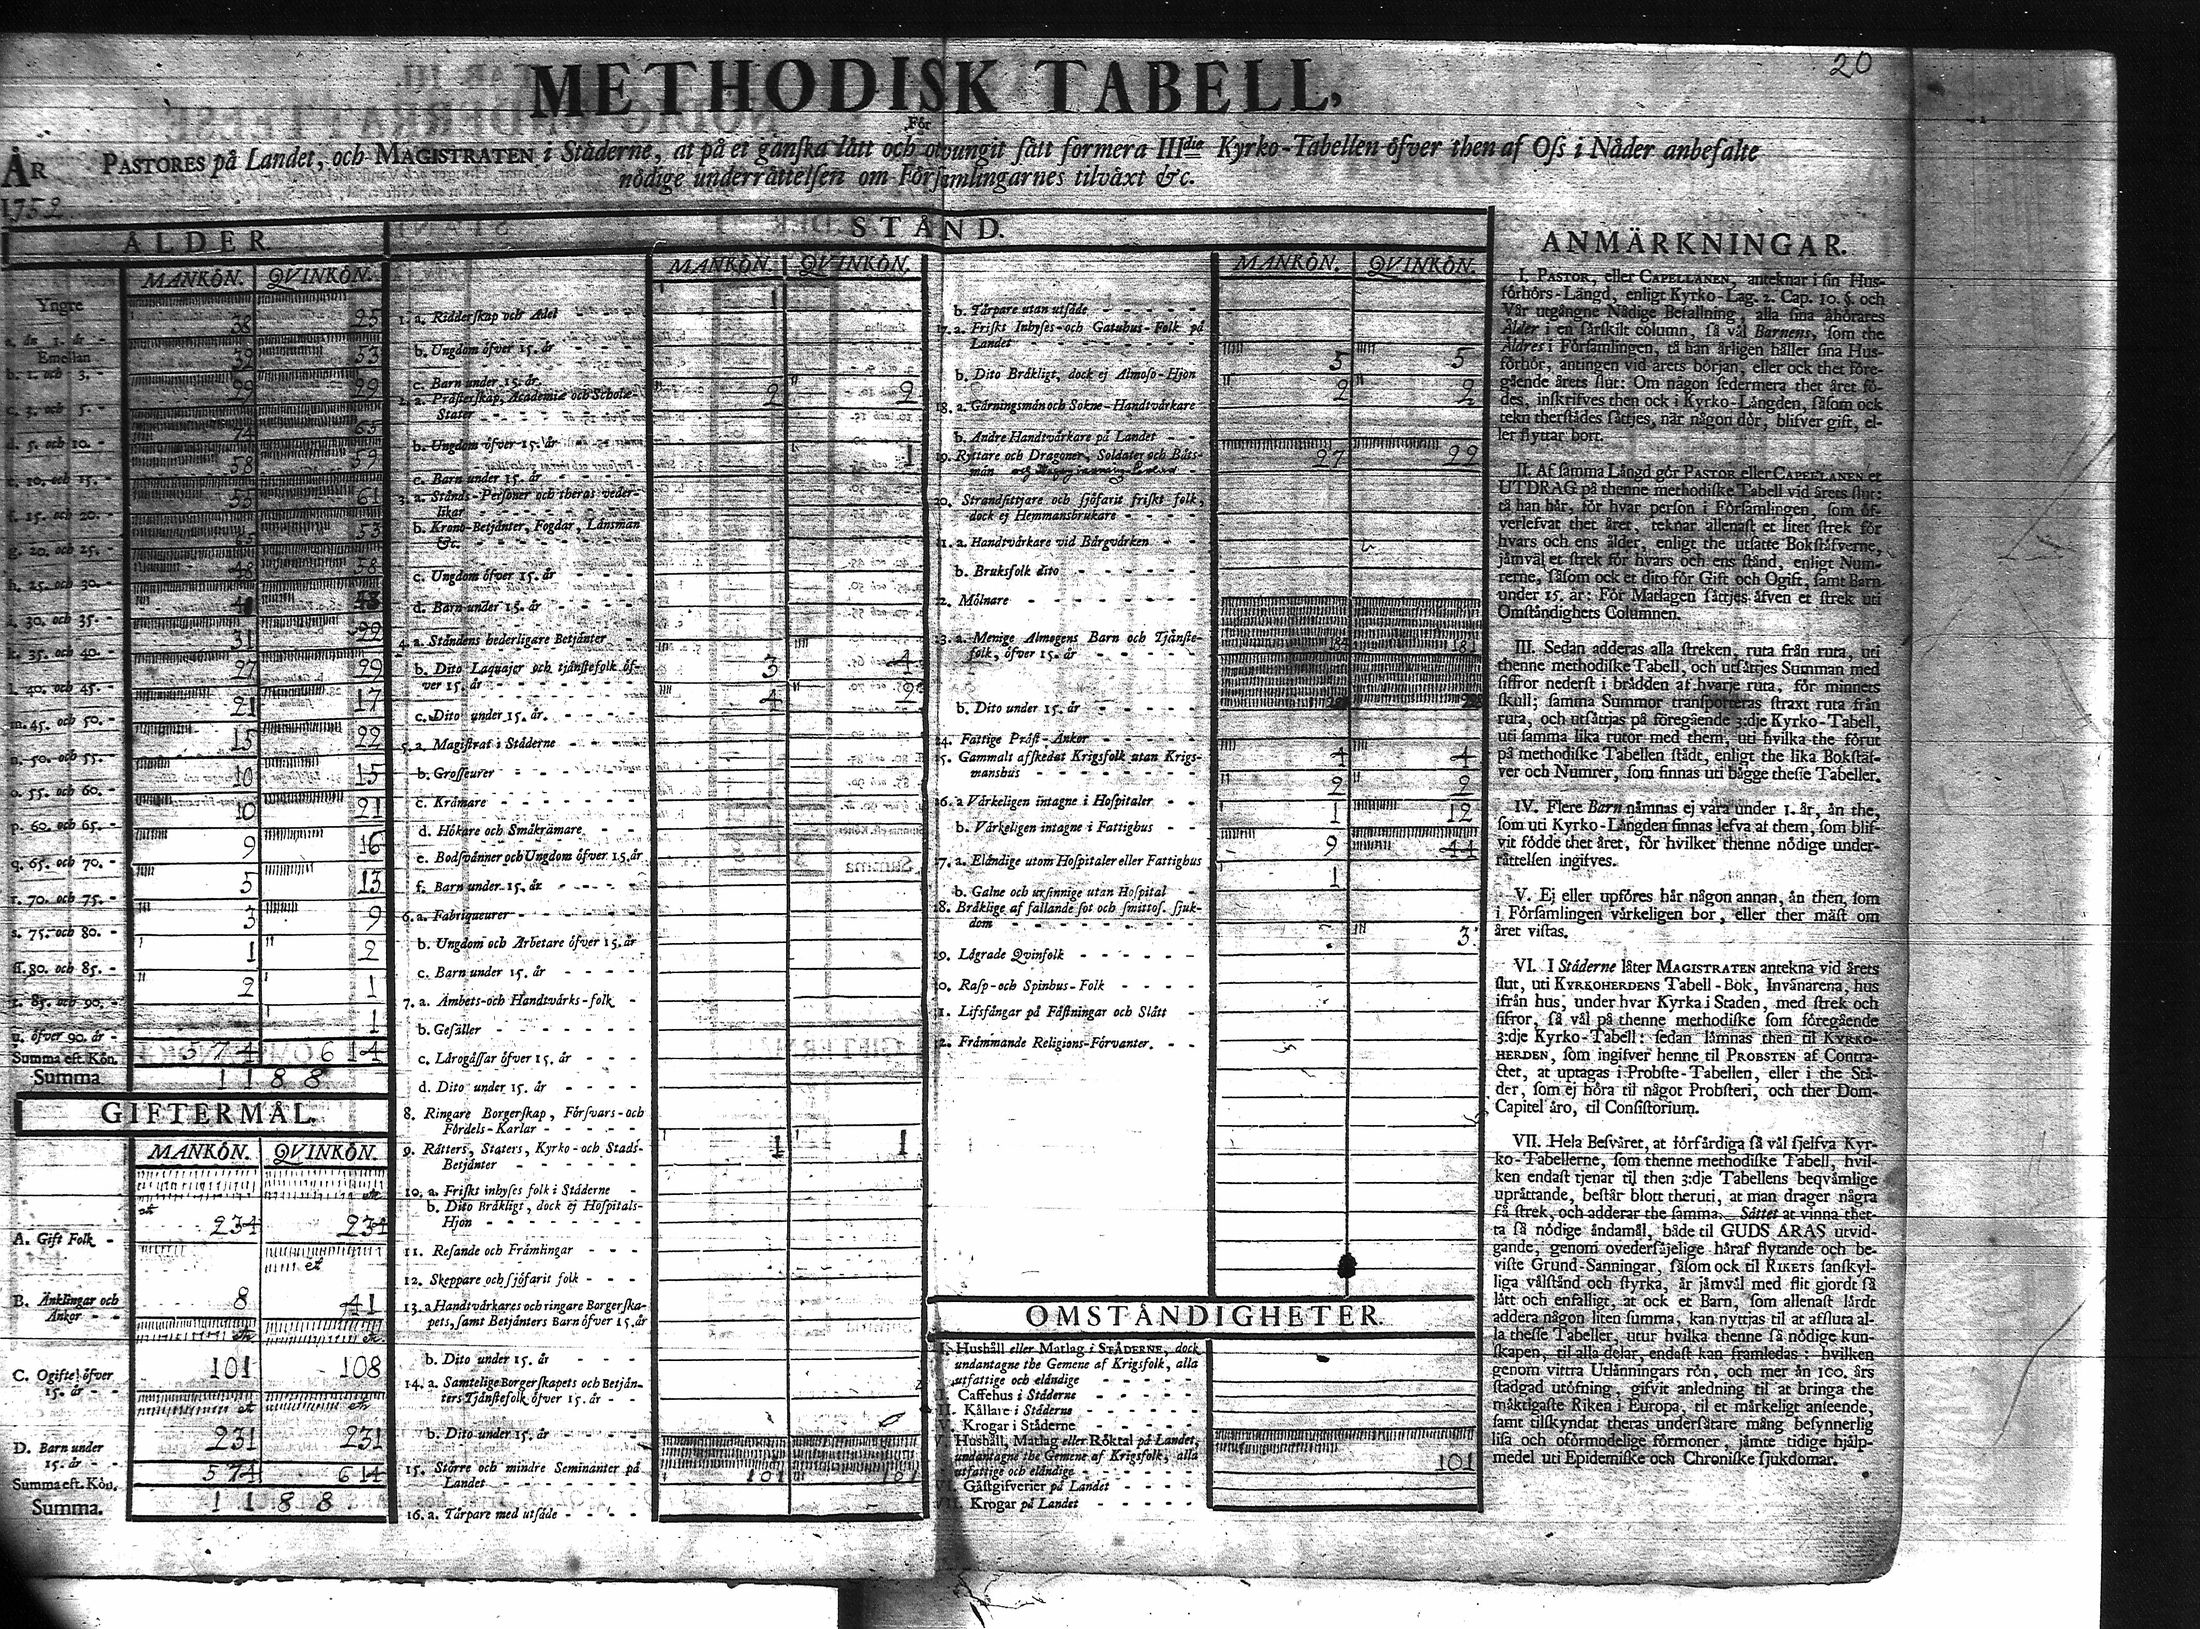 20
METHODISK TABELL,
För
ÅR PASTORES på Landet, och MAGISTRATEN i Städerne, at på et ganska lätt och otvungit sätt formera IIIdie Kyrko-Tabellen öfver then af Oss i Nåder anbefalte
nödige underrättelsen om Församlingarnes tilväxt &c.
1752
ÅLDER.
MANKÖN. QVINKÖN.
Yngre
a. än 1. år - 38 25
Emellan
b. 1. och 3. - 39 53
c. 3. och 5. - 29 29
d. 5. och 10. - 74 65
e. 10. och 15. - 58 59
f. 15. och 20. - 55 61
g. 20. och 25. - 53
h. 25. och 30. - 48 58
i. 30. och 35. - 43
k. 35. och 40. - 31 22
l. 40. och 45. - 27 29
m. 45. och 50. - 21 17
n. 50. och 55. - 15 22
o. 55. och 60. - 10 15
p. 60. och 65. - 10 21
q. 65. och 70. - 9 16
r. 70. och 75. - 5 13
s. 75. och 80. - 3 9
ſſ. 80. och 85. - 1 2
t. 85. och 90. - 2 1
u. öfver 90. år - 1
Summa eft. Kön. 574 614
Summa 1188
GIFTERMÅL.
MANKÖN. QVINKÖN.
A. Gift Folk - 234 234
B. Änklingar och
Änkor - - 8 41
C. Ogifte öfver
15. år - - 101 108
D. Barn under
15. år - - 231 231
Summa eft. Kön. 574 614
Summa. 1188
STÅND.
MANKÖN. QVINKÖN.
1. a. Ridderskap och Adel - - - 1
b. Ungdom öfver 15. år - - - -
c. Barn under 15. år
2. a. Prästerskap, Academie och Schole-
Stater - - - - - 2 2
b. Ungdom öfver 15. år - - - 1
c. Barn under 15. år - - - -
3. a. Stånds-Personer och theras veder-
likar - - - - -
b. Krono-Betjänter, Fogdar, Länsmän
&c. - - - - - -
c. Ungdom öfver 15. år - - - -
d. Barn under 15. år - - - -
4. a. Ståndens hederligare Betjänter -
b. Dito Laquajer och tjänstefolk öf-
ver 15. år - - - - - 3 4
c. Dito under 15. år. - - - - 4 2
5. a. Magistrat i Städerne - - - -
b. Grosseurer - - - - - -
c. Krämare - - - - - -
d. Hökare och Småkrämare - - -
e. Bodsvänner och Ungdom öfver 15. år
f. Barn under 15. år - - - -
6. a. Fabriqueurer - - - - -
b. Ungdom och Arbetare öfver 15. år
c. Barn under 15. år - - - -
7. a. Ämbets-och Handtvärks-folk -
b. Gesäller - - - - - -
c. Lärogåssar öfver 15. år - - -
d. Dito under 15. år - - - -
8. Ringare Borgerskap, Försvars-och
Fördels-Karlar - - - - -
9. Rätters, Staters, Kyrko-och Stads-
Betjänter - - - - - - 1 1
10. a. Friskt inhyses folk i Städerne -
b. Dito Bräkligt, dock ej Hospitals-
Hjon - - - - - - -
11. Resande och Främlingar - - -
12. Skeppare och sjöfarit folk - - -
13. a Handtvärkares och ringare Borgerska-
pets, samt Betjänters Barn öfver 15. år
b. Dito under 15. år - - - -
14. a. Samtelige Borgerskapets och Betjän-
ters Tjänstefolk öfver 15. år - -
b. Dito under 15. år - - - -
15. Större och mindre Seminanter på
Landet - - - - - - 101 101
16. a. Tårpare med utsäde - - - -
MANKÖN. QVINKÖN.
b. Tårpare utan utsäde - - - -
17. a. Friskt Inhyses-och Gatuhus-Folk på
Landet - - - - - - 5 5
b. Dito Bräkligt, dock ej Almoso-Hjon 2 2
18. a. Gärningsmän och Sokne-Handtvärkare
b. Andre Handtvärkare på Landet - -
19. Ryttare och Dragoner, Soldater och Båts-
män 27 22
20. Strandsittjare och sjöfarit friskt folk,
dock ej Hemmansbrukare - - -
21. a. Handtvärkare vid Bärgvärken - -
b. Bruksfolk dito - - - - -
22. Mölnare - - - - - - -
23. a. Menige Almogens Barn och Tjänste-
folk, öfver 15. år - - - - - 184 181
b. Dito under 15. år - - - - -
24. Fattige Präst-Änkor - - - -
25. Gammalt afskedat Krigsfolk utan Krigs-
manshus - - - - - - 4 4
26. a Värkeligen intagne i Hospitaler - - 2 2
b. Värkeligen intagne i Fattighus - - 1 12
27. a. Eländige utom Hospitaler eller Fattighus 9 44
b. Galne och ursinnige utan Hospital - 1
28. Bräklige af fallande sot och smittos. sjuk-
dom - - - - - - -
29. Lägrade Qvinfolk - - - - - - 3
30. Rasp-och Spinhus-Folk - - - -
31. Lifsfångar på Fästningar och Slått -
32. Främmande Religions-Förvanter. - -
OMSTÄNDIGHETER.
I. Hushåll eller Matlag i STÄDERNE, dock
undantagne the Gemene af Krigsfolk, alla
utfattige och eländige - - - - -
II. Caffehus i Städerne - - - -
III. Källare i Städerne - - - -
IV. Krogar i Städerne - - - -
V. Hushåll, Matlag eller Röktal på Landet,
undantagne the Gemene af Krigsfolk, alla
utfattige och eländige - - - - - 101
VI. Gästgifverier på Landet - - - -
VII. Krogar på Landet - - - - -
ANMÄRKNINGAR.
I. PASTOR, eller CAPELLANEN, anteknar i sin Hus-
förhörs-Längd, enligt Kyrko-Lag. 2. Cap. 10. §. och
Vår utgångne Nådige Befallning, alla sina åhörares
Ålder i en särskilt column, så väl Barnens, som the
Äldres i Församlingen, tå han årligen håller sina Hus-
förhör, antingen vid årets början, eller ock thet före-
gående årets slut: Om någon sedermera thet året fö-
des, inskrifves then ock i Kyrko-Längden, såsom ock
tekn therstädes sättjes, när någon dör, blifver gift, el-
ler flyttar bort.
II. Af samma Längd gör PASTOR eller CAPELLANEN et
UTDRAG på thenne methodiske Tabell vid årets slut:
tå han här, för hvar person i Församlingen, som öf-
verlefvat thet året, teknar allenast et litet strek för
hvars och ens ålder, enligt the utsatte Bokstäfverne,
jämväl et strek för hvars och ens stånd, enligt Num-
rerne, såsom ock et dito för Gift och Ogift, samt Barn
under 15. år: För Matlagen sättjes äfven et strek uti
Omständighets Columnen.
III. Sedan adderas alla streken, ruta från ruta, uti
thenne methodiske Tabell, och utsättjes Summan med
siffror nederst i brädden af hvarje ruta, för minnets
skull; samma Summor transporteras straxt ruta från
ruta, och utsättjas på föregående 3:dje Kyrko-Tabell,
uti samma lika rutor med them, uti hvilka the förut
på methodiske Tabellen stådt, enligt the lika Bokstäf-
ver och Numrer, som finnas uti bägge thesse Tabeller.
IV. Flere Barn nämnas ej vara under 1. år, än the,
som uti Kyrko-Längden finnas lefva af them, som blif-
vit födde thet året, för hvilket thenne nödige under-
rättelsen ingifves.
V. Ej eller upföres här någon annan, än then, som
i Församlingen värkeligen bor, eller ther mäst om
året vistas.
VI. I Städerne låter MAGISTRATEN antekna vid årets
slut, uti KYRKOHERDENS Tabell-Bok, Invånarena, hus
ifrån hus, under hvar Kyrka i Staden, med strek och
sifror, så väl på thenne methodiske som föregående
3:dje Kyrko-Tabell: sedan lämnas then til KYRKO-
HERDEN, som ingifver henne til PROBSTEN af Contra-
ctet, at uptagas i Probste-Tabellen, eller i the Stä-
der, som ej höra til något Probsteri, och ther Dom-
Capitel äro, til Consistorium.
VII. Hela Besväret, at förfärdiga så väl sjelfva Kyr-
ko-Tabellerne, som thenne methodiske Tabell, hvil-
ken endast tjenar til then 3:dje Tabellens beqvämlige
uprättande, består blott theruti, at man drager några
få strek, och adderar the samma. Sättet at vinna thet-
ta så nödige ändamål, både til GUDS ÄRAS utvid-
gande, genom ovedersäjelige häraf flytande och be-
viste Grund-Sanningar, såsom ock til RIKETS sanskyl-
liga välstånd och styrka, är jämväl med flit gjordt så
lätt och enfalligt, at ock et Barn, som allenast lärdt
addera någon liten summa, kan nyttjas til at afsluta al-
la thesse Tabeller, utur hvilka thenne så nödige kun-
skapen, til alla delar, endast kan framledas: hvilken
genom vittra Utlänningars rön, och mer än 100. års
stadgad utöfning, gifvit anledning til at bringa the
mäktigaste Riken i Europa, til et märkeligt anseende,
samt tilskyndat theras undersåtare mång besynnerlig
lisa och oförmodelige förmoner, jämte tidige hjälp-
medel uti Epidemiske och Chroniske sjukdomar.